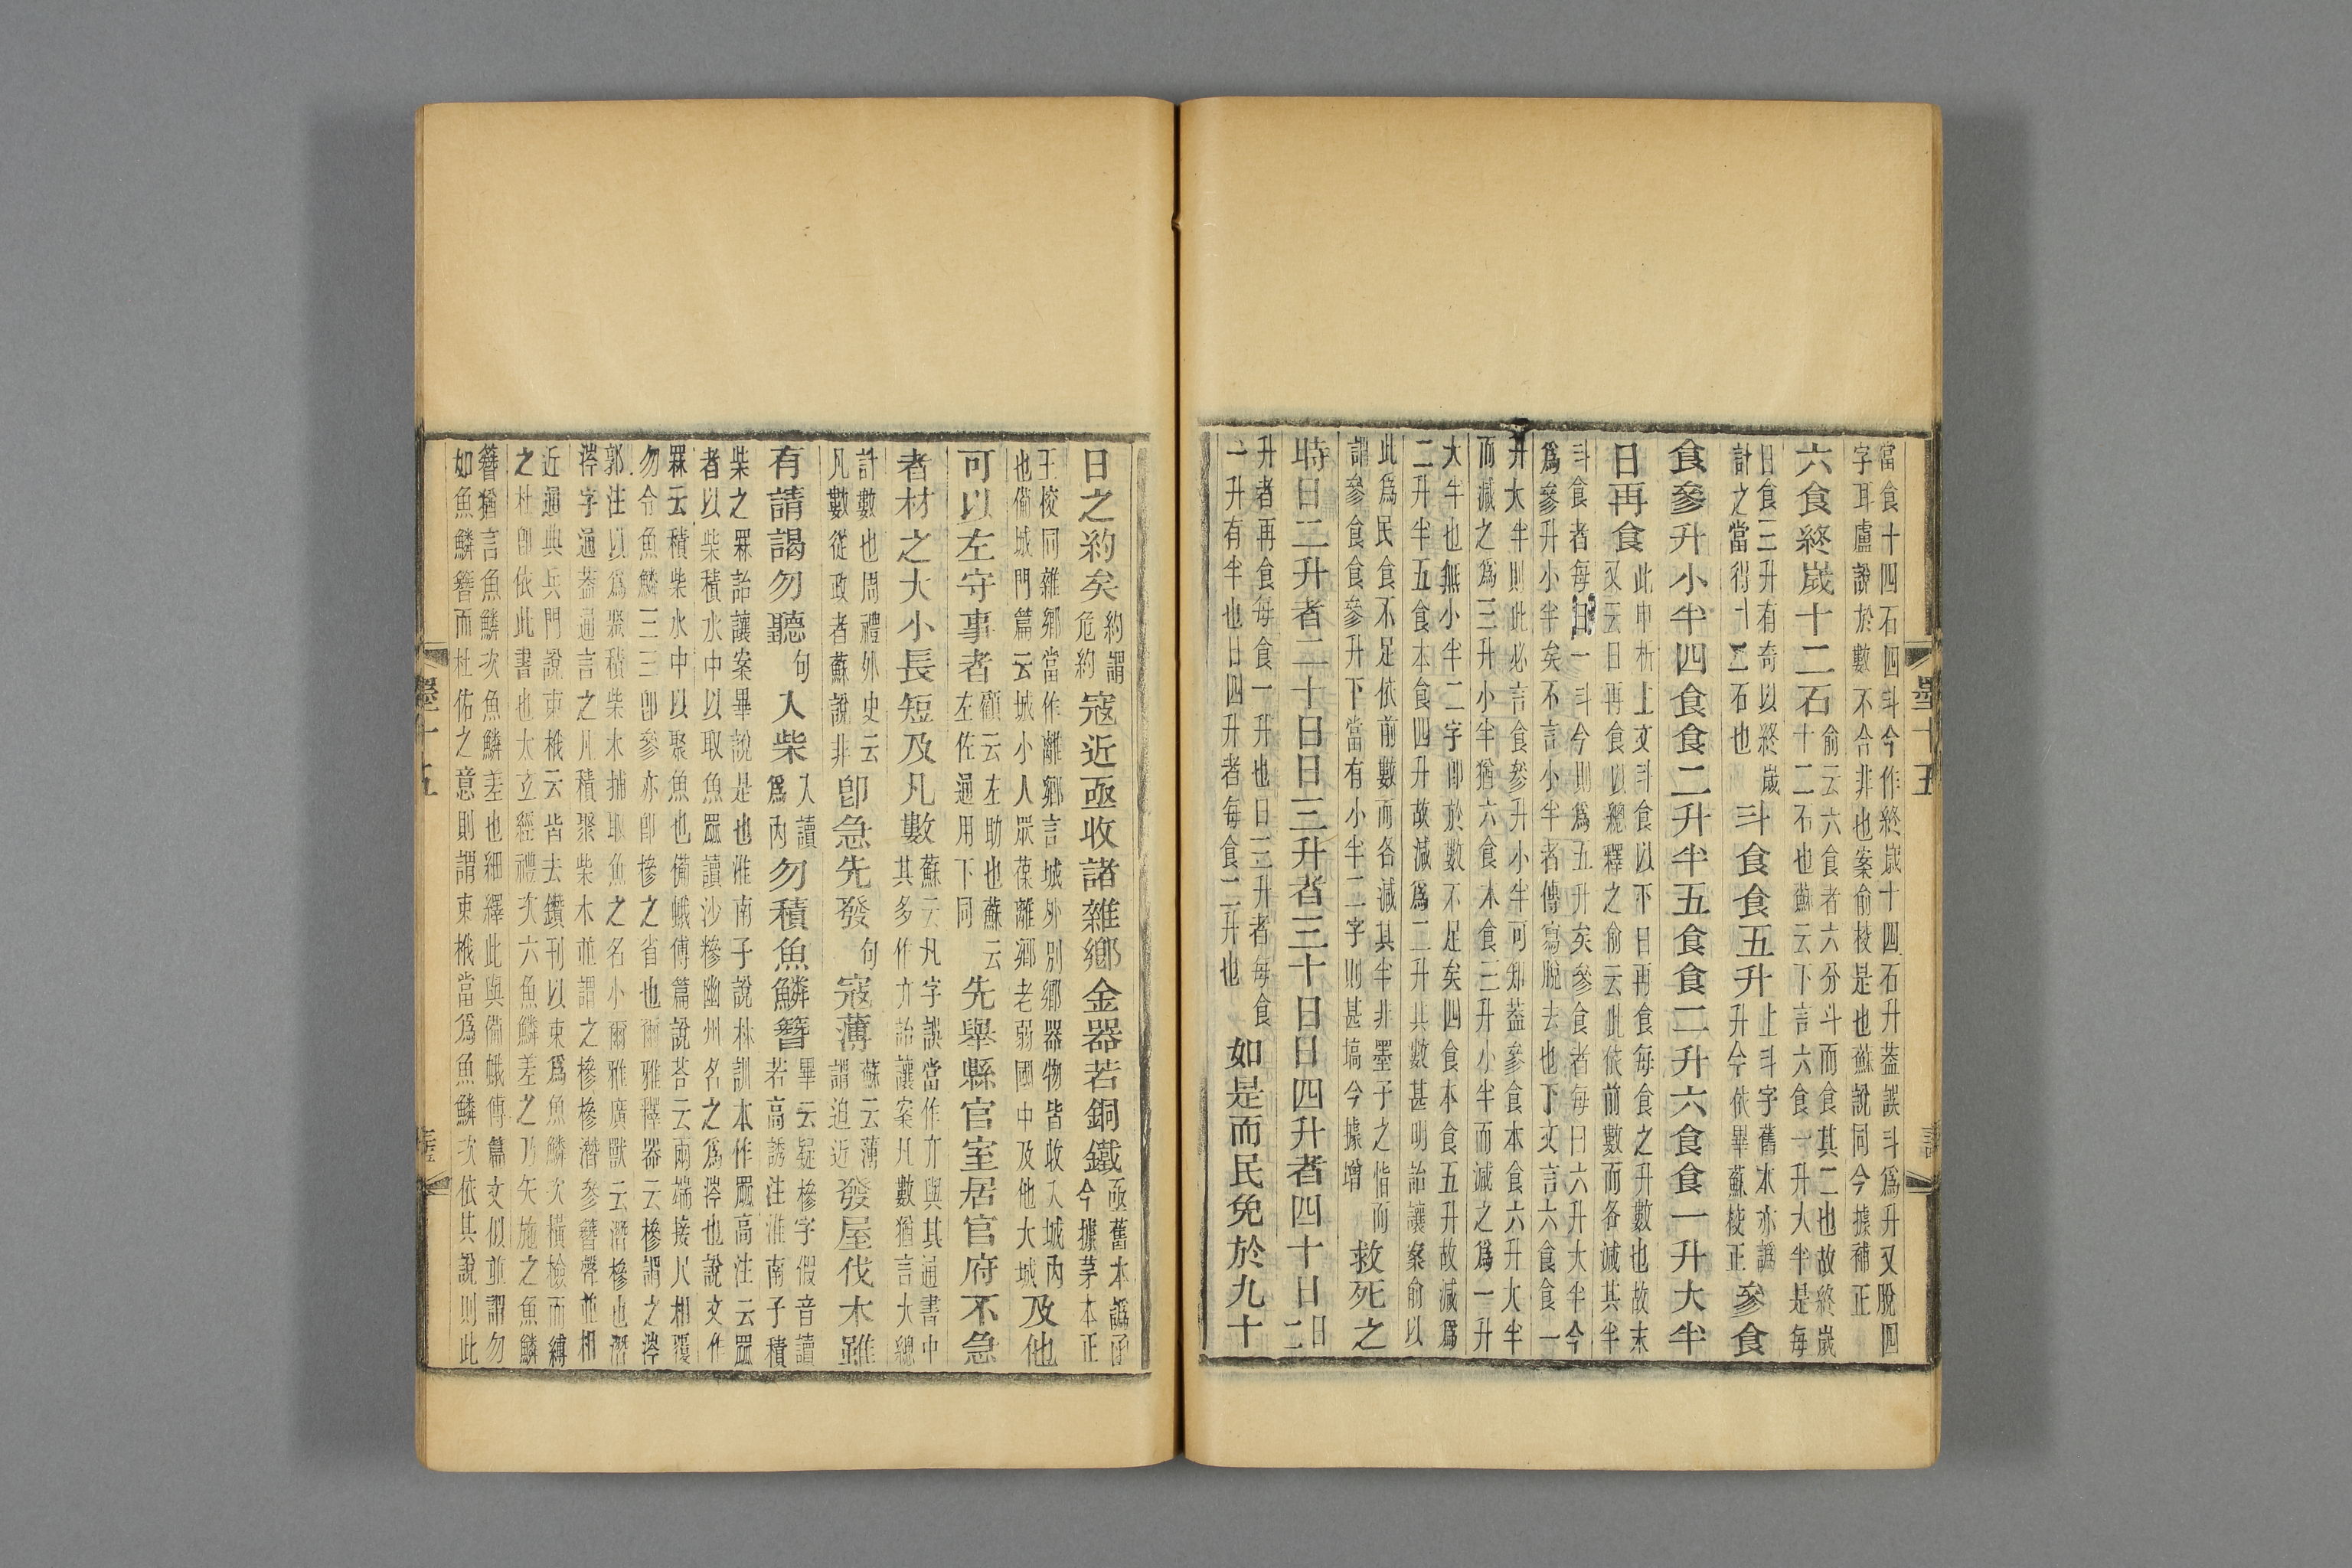 當食十四石四斗今作終歲十四石升蓋誤斗爲升又脫四
字耳盧說於數不合非也案俞校是也蘇說同今據補正
六食終歲十二石
俞云六食者六分斗而食其二也故終歲
十二石也蘇云下言六食一升大半是每
日食三升有奇以終歲
計之當得十二石也
斗食食五升
上斗字舊本亦譌
升今依畢蘇校正
參食
食參升小半四食食二升半五食食二升六食食一升大半
日再食
此申析上文斗食以下日再食每食之升數也故末
又云日再食以總釋之俞云此依前數而各減其半
斗食者每日一斗今則爲五升矣參食者每日六升大半今
爲參升小半矣不言小半者傳寫脫去也下文言六食食一
升大半則此必言食參升小半可知蓋參食本食六升大半
而減之爲三升小半猶六食本食三升小半而減之爲一升
大半也無小半二字卽於數不足矣四食本食五升故減爲
二升半五食本食四升故減爲二升其數甚明詒讓案俞以
此爲民食不足依前數而各減其半非墨子之恉而
謂參食食參升下當有小半二字則甚塙今據增
救死之
時日二升者二十日日三升者三十日日四升者四十日
日
二
升者再食每食一升也日三升者每食
一升有半也日四升者每食二升也
如是而民免於九十
墨十五
日之約矣
約謂
危約
寇近亟收諸雜鄉金器若銅鐵
亟舊本譌函
今據茅本正
王校同雜鄉當作離鄉言城外別鄉器物皆收入城內
也備城門篇云城小人眾葆離鄉老弱國中及他大城
及他
可以左守事者
顧云左助也蘇云
左佐通用下同
先舉縣官室居官府不急
者材之大小長短及凡數
蘇云凡字誤當作亓與其通書中
其多作亓詒讓案凡數猶言大總
計數也周禮外史云
凡數從政者蘇說非
卽急先發
句
寇薄
蘇云薄
謂迫近
發屋伐木雖
有請謁勿聽
句
入柴
入讀
爲內
勿積魚鱗簪
畢云疑槮字假音讀
若高誘注淮南子積
柴之罧詒讓案畢說是也淮南子說林訓本作罛高注云罛
者以柴積水中以取魚罛讀沙糝幽州名之爲涔也說文作
罧云積柴水中以聚魚也備蛾傅篇說荅云兩端接尺相覆
勿令魚鱗三三卽參亦卽槮之省也爾雅釋器云槮謂之涔
郭注以爲聚積柴木捕取魚之名小爾雅廣獸云潛槮也潛
涔字通蓋通言之凡積聚柴木並謂之槮槮潛參簪聲並相
近通典兵門說束栰云皆去鑽刊以束爲魚鱗次橫檢而縛
之杜卽依此書也太玄經禮次六魚鱗差之乃矢施之魚鱗
簪猶言魚鱗次魚鱗差也細繹此與備蛾傅篇文似並謂勿
如魚鱗簪而杜佑之意則謂束栰當爲魚鱗次依其說則此
墨十五